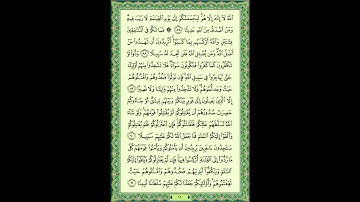 اللَّهُ لَا إِلَٰهَ إِلَّا هُوَ لَيَجْمَعَنَّكُمْ إِلَىٰ يَوْمِ الْقِيَٰمَةِ لَا رَيْبَ فِيهِ
وَمَنْ أَصْدَقُ مِنَ اللَّهِ حَدِيثًا ٨٧ ۞ فَمَا لَكُمْ فِي الْمُنَٰفِقِينَ
فِئَتَيْنِ وَاللَّهُ أَرْكَسَهُم بِمَا كَسَبُوا أَتُرِيدُونَ أَن تَهْدُوا مَنْ
أَضَلَّ اللَّهُ وَمَن يُضْلِلِ اللَّهُ فَلَن تَجِدَ لَهُ سَبِيلًا ٨٨ وَدُّوا لَوْ
تَكْفُرُونَ كَمَا كَفَرُوا فَتَكُونُونَ سَوَاءً فَلَا تَتَّخِذُوا مِنْهُمْ أَوْلِيَاءَ
حَتَّىٰ يُهَاجِرُوا فِي سَبِيلِ اللَّهِ فَإِن تَوَلَّوْا فَخُذُوهُمْ وَاقْتُلُوهُمْ
حَيْثُ وَجَدتُّمُوهُمْ وَلَا تَتَّخِذُوا مِنْهُمْ وَلِيًّا وَلَا نَصِيرًا ٨٩
إِلَّا الَّذِينَ يَصِلُونَ إِلَىٰ قَوْمٍ بَيْنَكُمْ وَبَيْنَهُم مِّيثَٰقٌ أَوْ جَاءُوكُمْ
حَصِرَتْ صُدُورُهُمْ أَن يُقَٰتِلُوكُمْ أَوْ يُقَٰتِلُوا قَوْمَهُمْ وَلَوْ شَاءَ
اللَّهُ لَسَلَّطَهُمْ عَلَيْكُمْ فَلَقَٰتَلُوكُمْ فَإِنِ اعْتَزَلُوكُمْ فَلَمْ يُقَٰتِلُوكُمْ
وَأَلْقَوْا إِلَيْكُمُ السَّلَمَ فَمَا جَعَلَ اللَّهُ لَكُمْ عَلَيْهِمْ سَبِيلًا ٩٠
سَتَجِدُونَ ءَاخَرِينَ يُرِيدُونَ أَن يَأْمَنُوكُمْ وَيَأْمَنُوا قَوْمَهُمْ كُلَّ
مَا رُدُّوا إِلَى الْفِتْنَةِ أُرْكِسُوا فِيهَا فَإِن لَّمْ يَعْتَزِلُوكُمْ وَيُلْقُوا
إِلَيْكُمُ السَّلَمَ وَيَكُفُّوا أَيْدِيَهُمْ فَخُذُوهُمْ وَاقْتُلُوهُمْ حَيْثُ
ثَقِفْتُمُوهُمْ وَأُولَٰئِكُمْ جَعَلْنَا لَكُمْ عَلَيْهِمْ سُلْطَٰنًا مُّبِينًا ٩١